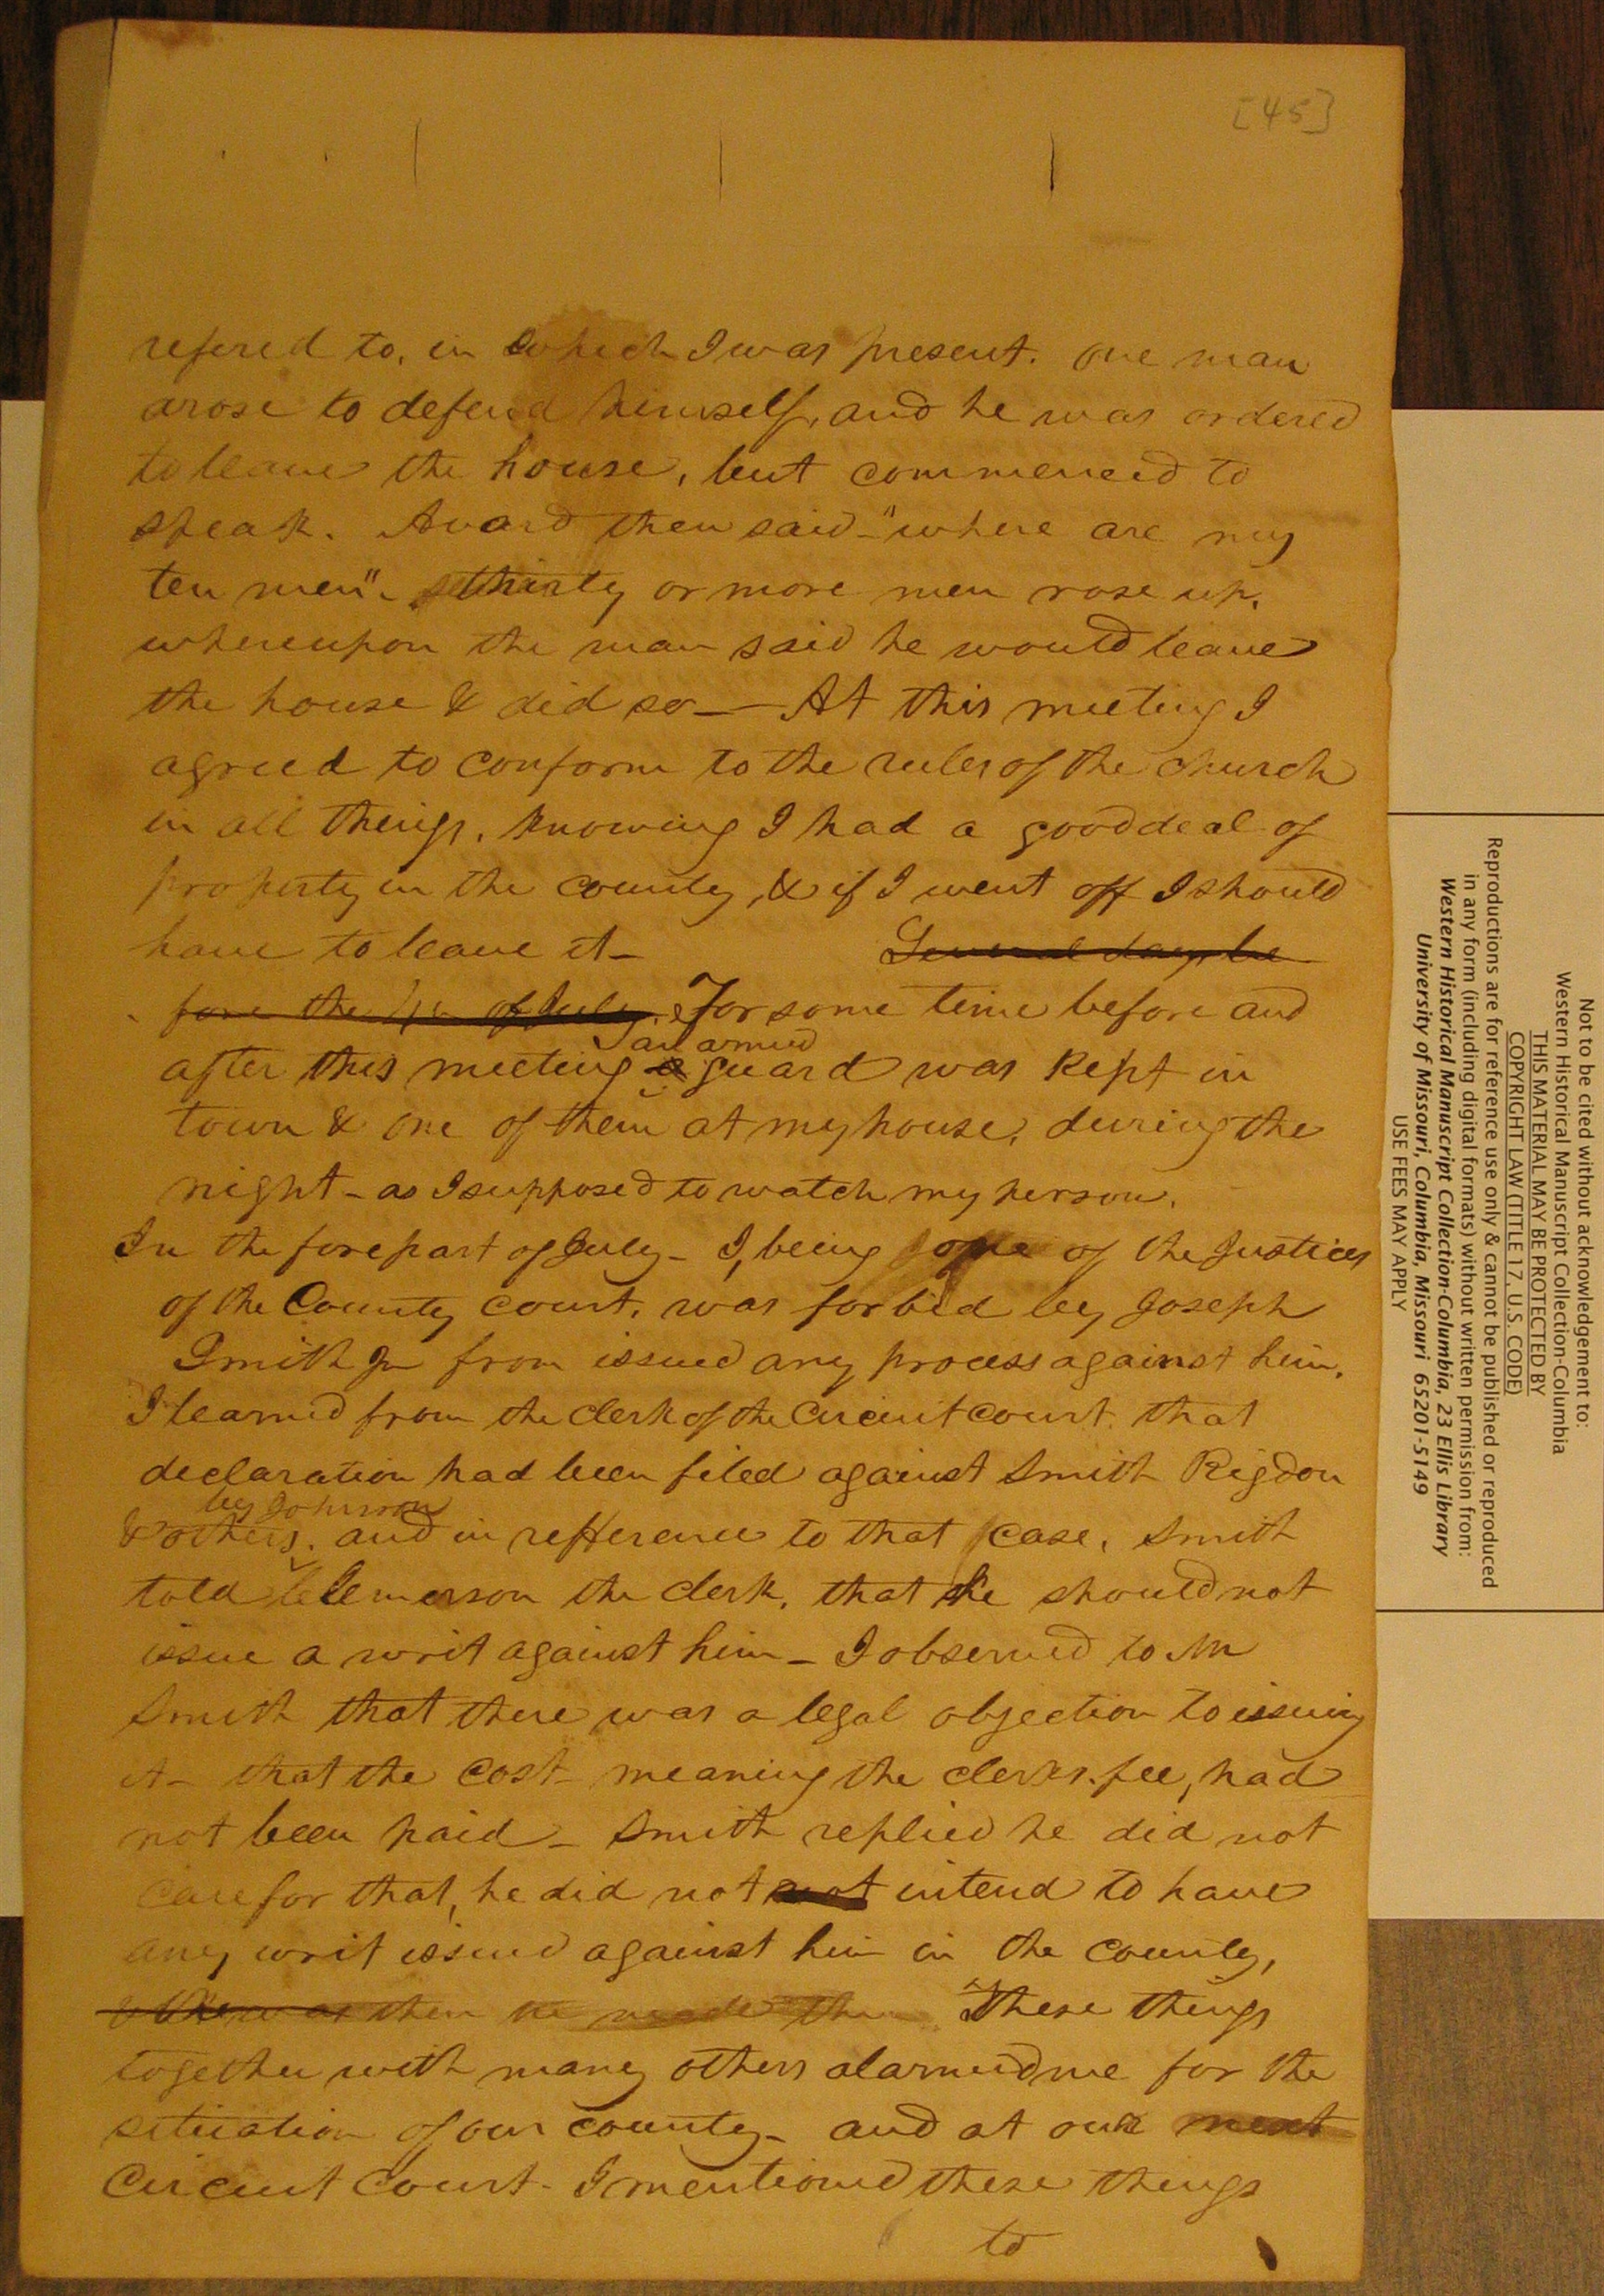 [45]
refered to, in which I was present. one man
arose to defend himself, and he was ordered
to leave the house, but commenced to
speak. Avard then said - "where are my
ten men". thirty or more men rose up,
whereupon the man said he would leave
the house & did so — At this meeting I
agreed to conform to the rules of the church
in all things, knowing I had a good deal of
property in the county, & if I went off I should
have to leave it - Several days be
fore the 4th of July. For some time before and
an armed
after this meeting a guard was kept in
town & one of them at my house, during the
night - as I supposed to watch my person.
In the forepart of July - I, being one of the Justices
of the County court, was forbid by Joseph
Smith Jr from issued any process against him.
I learned from the clerk of the Circuit court that
declaration had been filed against Smith Rigdon
by Johnson
& others, and in refference to that case, Smith
told the clerk, that he should not
issue a writ against him - I observed to Mr
Smith that there was a legal objection to issuing
it - that the cost - meaning the clerks fee, had
not been paid - Smith replied he did not
care for that, he did not not intend to have
any writ issued against him in the county,
then he made the These things
together with many others alarmed me for the
situation of our county - and at our next
Circuit Court - I mentioned these things
to
Not to be cited without acknowledgement to:
Western Historical Manuscript Collection-Columbia
THIS MATERIAL MAY BE PROTECTED BY
COPYRIGHT LAW (TITLE 17, U.S. CODE)
Reproductions are for reference use only & cannot be published or reproduced
in any form (including digital formats) without written permission from:
Western Historical Manuscript Collection-Columbia, 23 Ellis Library
University of Missouri, Columbia, Missouri 65201-5149
USE FEES MAY APPLY